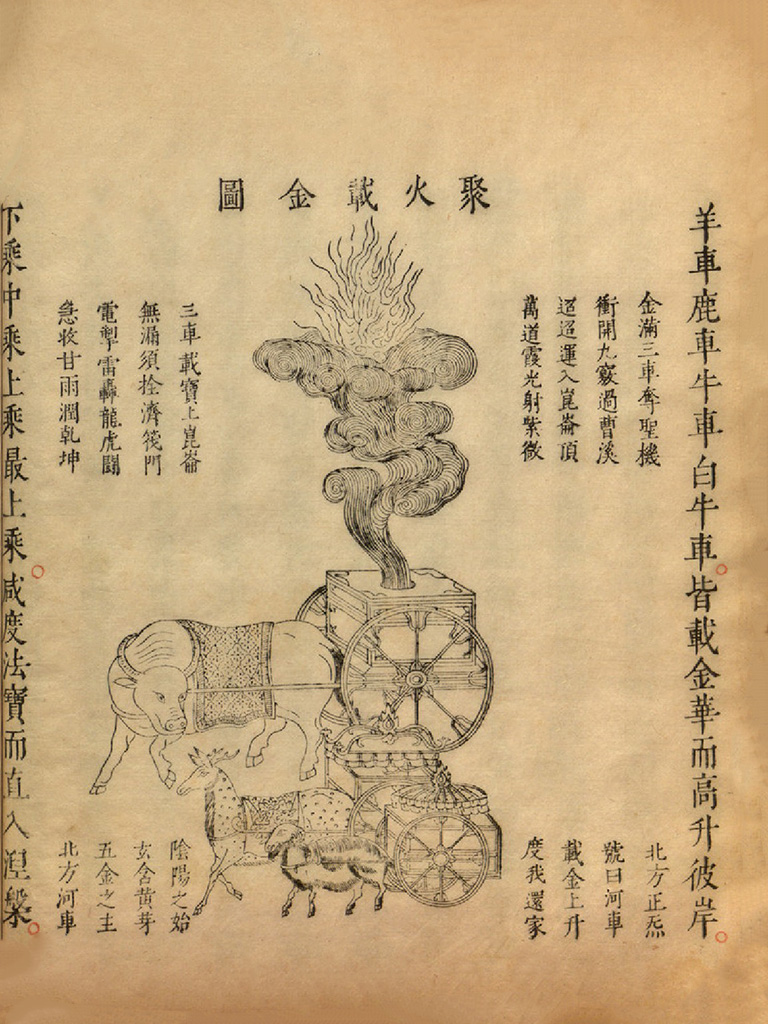 聚火載金圖
羊車鹿車牛車白牛車皆載金華而高升彼岸
金滿三車奪聖機
衝開九竅過曹溪
迢迢運入崑崙頂
萬道霞光射紫微
三車載寶上崑崙
無漏須拴濟筏門
電掣雷轟龍虎鬪
急收甘雨潤乾坤
北方正炁
號曰河車
載金上升
度我還家
陰陽之始
玄含黃芽
五金之主
北方河車
下乘中乘上乘最上乘咸度法寶而直入涅槃